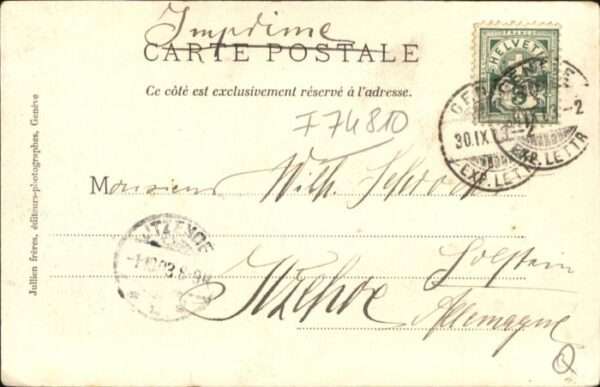 Imprimé
CARTE POSTALE
Ce côté est exclusivement réservé à l'adresse.
I 74810
HELVETIA
FRANCO
GENÈVE
30.IX
EXP. LETTR.
GENÈVE
EXP. LETTR.
Monsieur Wilh.
ITZEHOE
Holstein
Itzehoe
Allemagne
Jullien frères, éditeurs-photographes, Genève